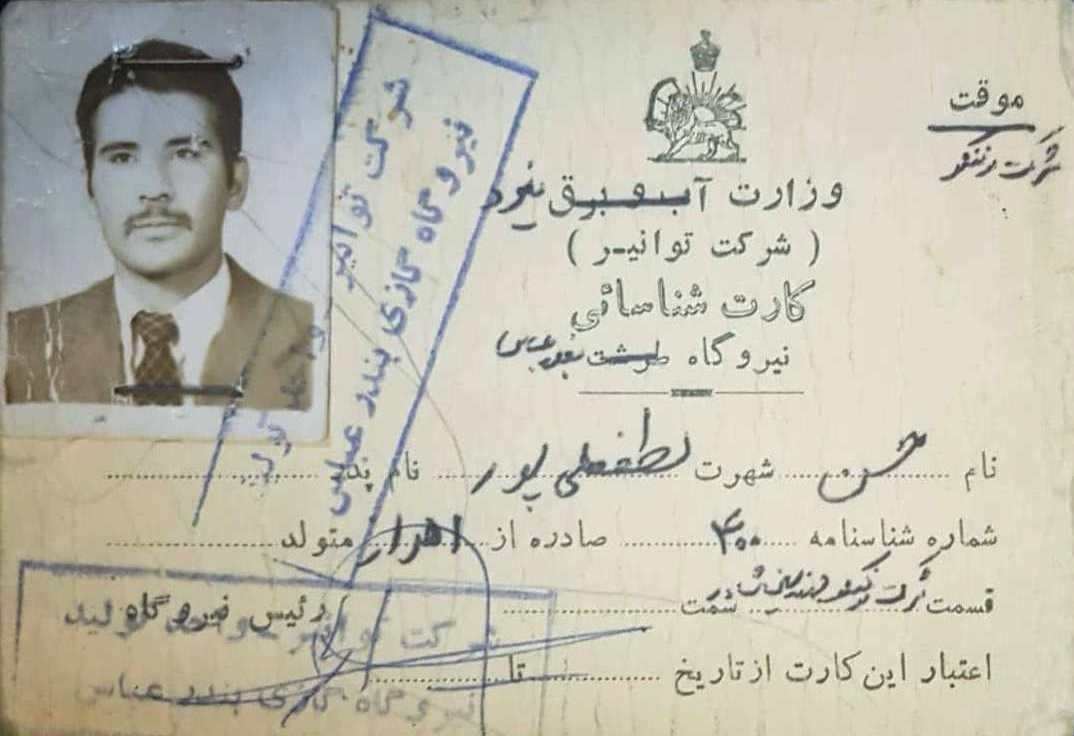 موقت
شرکت
وزارت آب و برق نیرو
( شرکت توانیر )
کارت شناسائی
نیروگاه طرشت بندرعباس
نام شهرت لطفعلی پور نام پدر
شماره شناسنامه ۴۰۰ صادره از اهواز متولد
قسمت شرکت سمت
اعتبار این کارت از تاریخ تا
رئیس نیروگاه
شرکت توانیر واحد تولید
نیروگاه گازی بندرعباس
شرکت توانیر واحد تولید
نیروگاه گازی بندرعباس